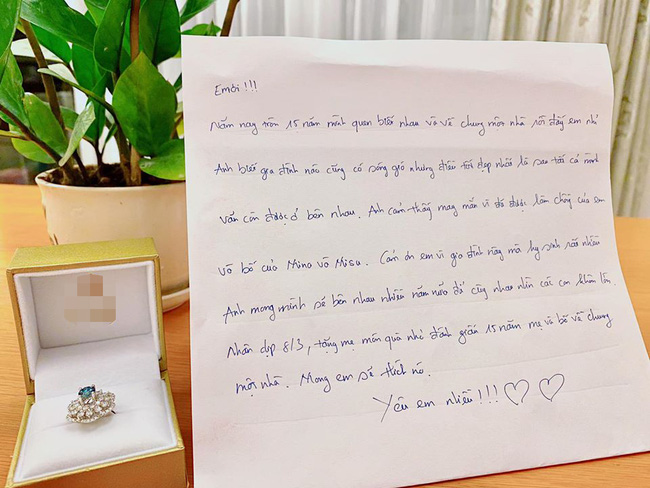 Emơi!!!
Năm nay tròn 15 năm mình quen biết nhau và về chung một nhà rồi đấy em nhỉ
Anh biết gia đình nào cũng có sóng gió nhưng điều tốt đẹp nhất là sau tất cả mình
vẫn còn được ở bên nhau. Anh cảm thấy may mắn vì đã được làm chồng của em
và bố của Mina và Misu. Cảm ơn em vì gia đình này mà hy sinh rất nhiều
Anh mong mình sẽ bên nhau nhiều năm nữa để cùng nhau nhìn các con khôn lớn.
Nhân dịp 8/3, tặng mẹ món quà nhỏ đánh dấu 15 năm mẹ và bố về chung
một nhà. Mong em sẽ thích nó.
Yêu em nhiều!!! ♡ ♡